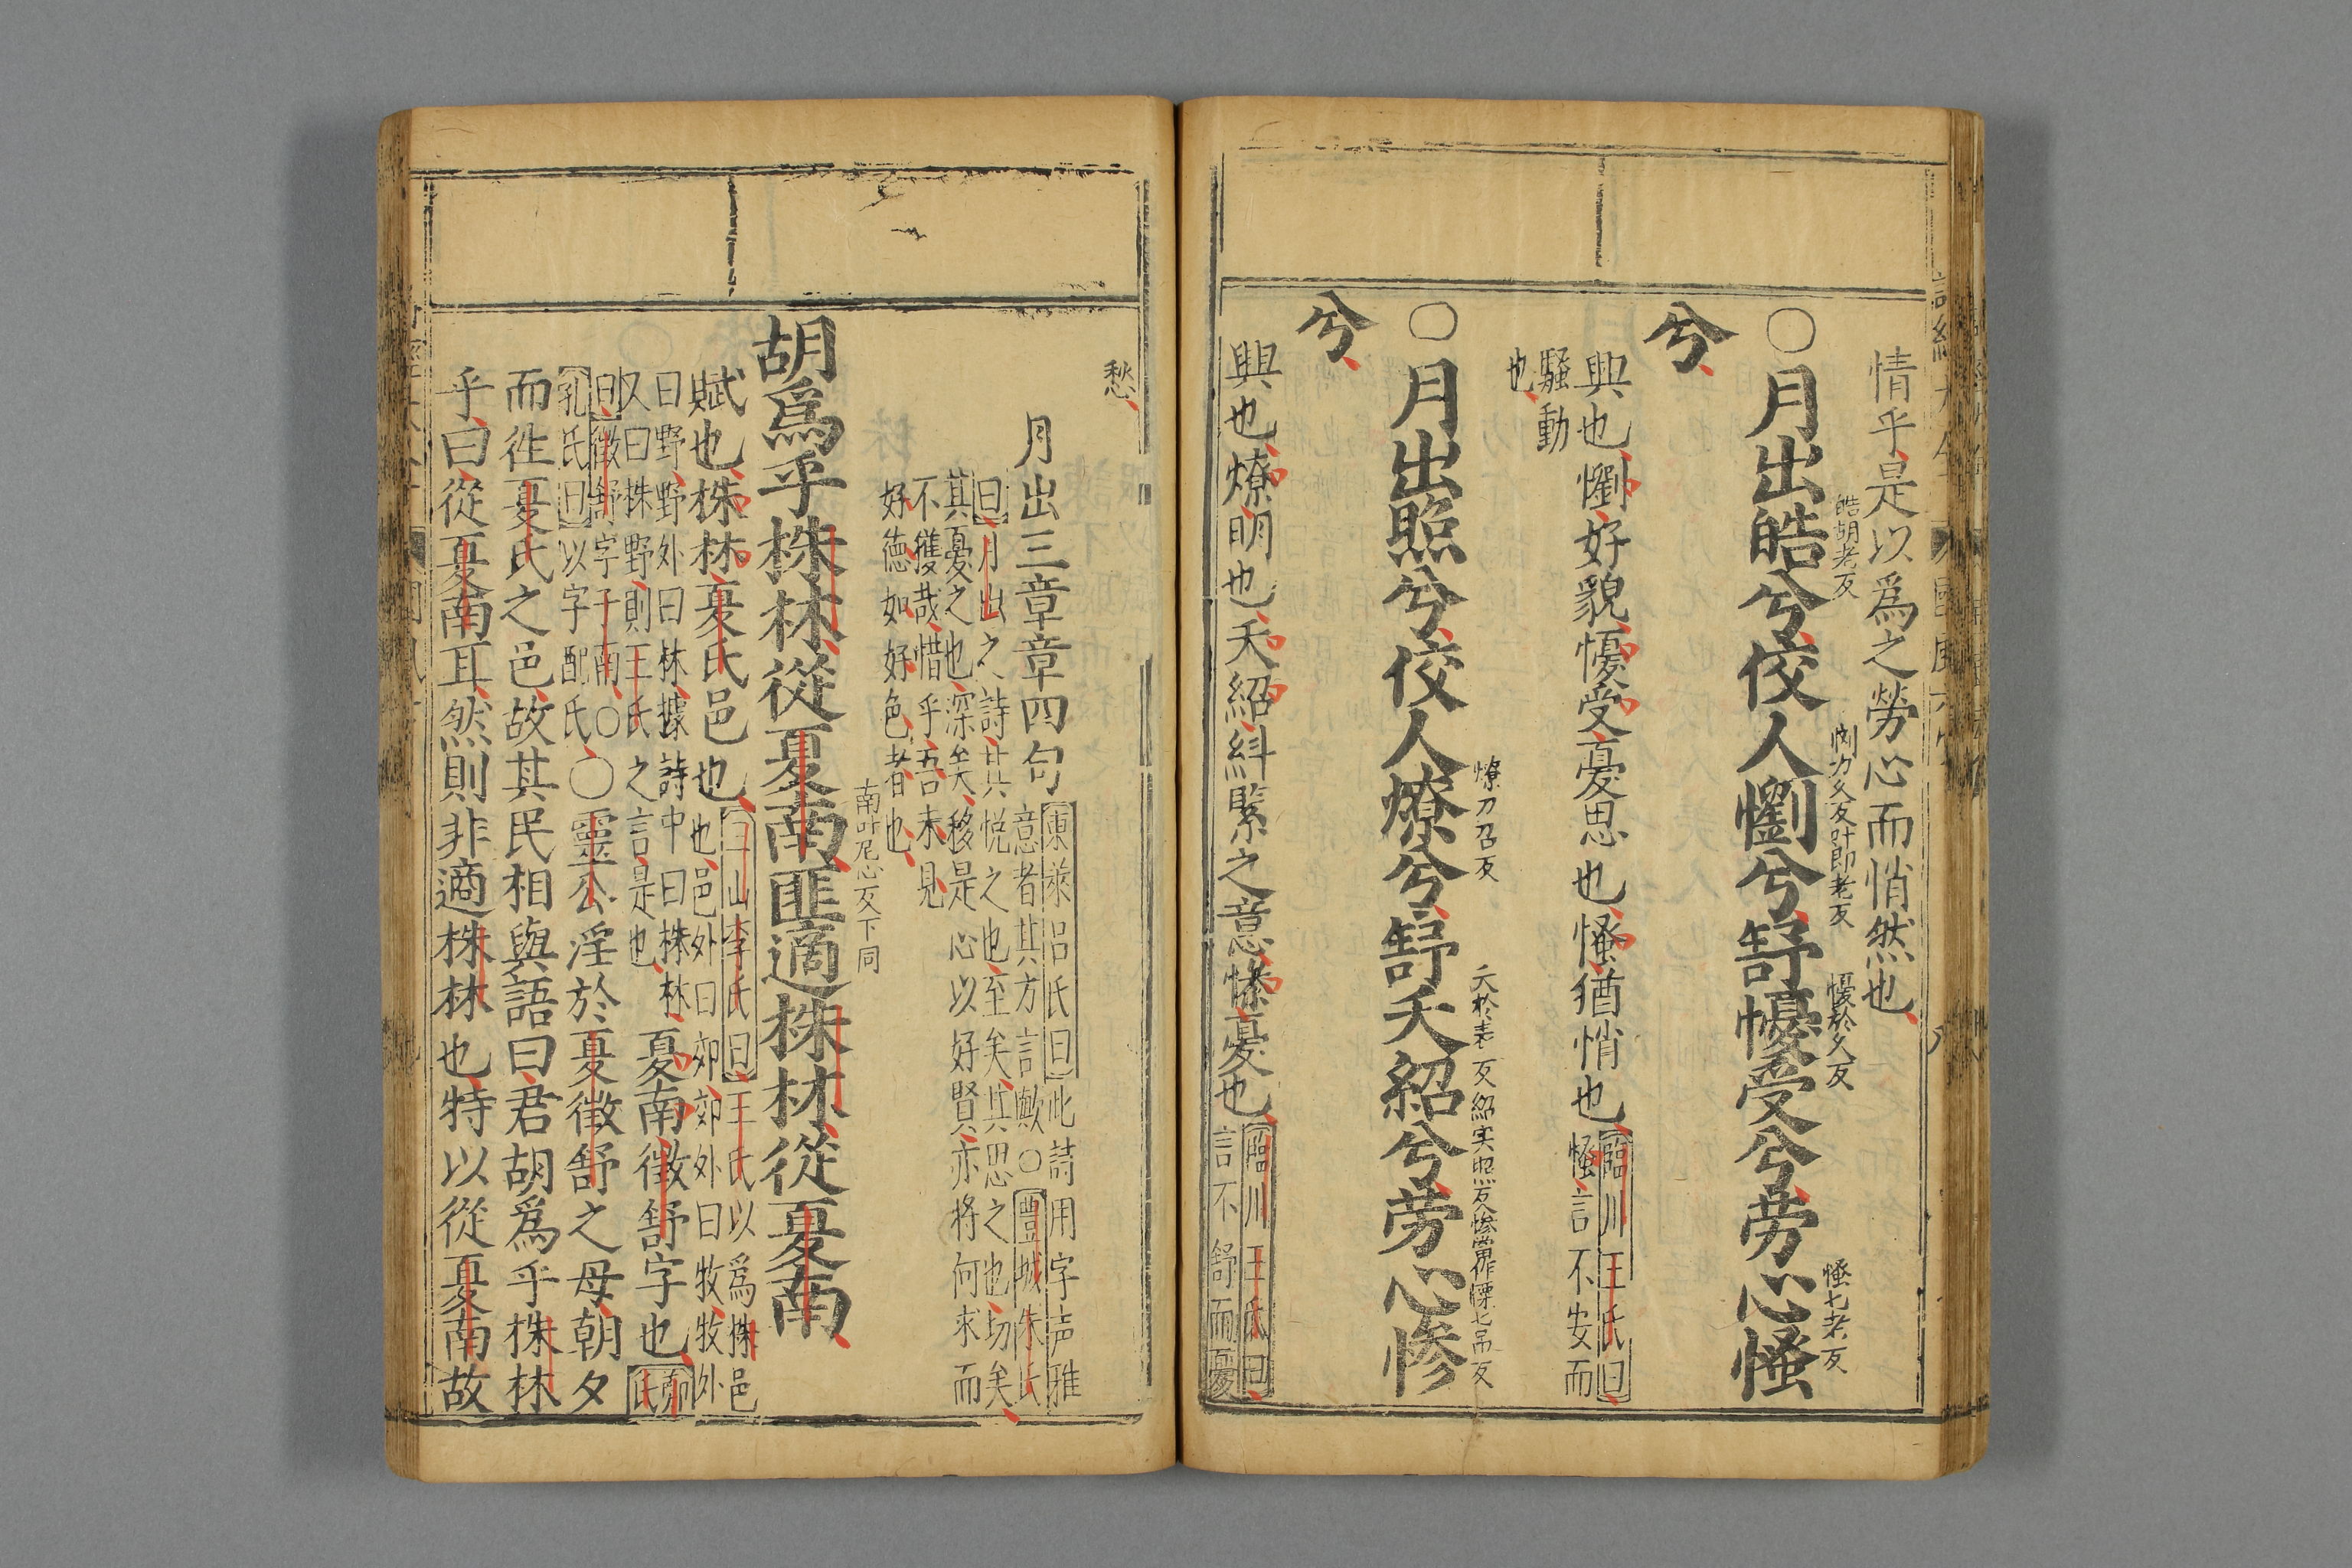 情乎是以爲之勞心而悄然也
○月出皓兮佼人懰兮舒慢受兮勞心慅
皓胡老反
懰力久反叶即老反
慢於久反
慅七老反
兮
興也懰好貌慢受憂思也慅猶悄也
臨川王氏曰
慅言不安而
騷動
也
○月出照兮佼人燎兮舒夭紹兮勞心慘
燎力召反
夭於表反紹实照反慘當作懆七吊反
兮
興也燎明也夭紹糾緊之意慘憂也
臨川王氏曰
言不舒而憂
愁
月出三章章四句
東萊呂氏曰此詩用字声雅
意者其方言歟○豊城朱氏
曰月出之詩其悅之也至矣其思之也切矣
其憂之也深矣移是心以好賢亦将何求而
不獲哉惜乎吾未見
好徳如好色者也
胡爲乎株林從夏南匪適株林從夏南
南叶尼心反下同
賦也株林夏氏邑也
三山李氏曰王氏以爲株邑
也邑外曰郊郊外曰牧牧外
曰野野外曰林據詩中曰株林
又曰株野則王氏之言是也
夏南徵舒字也
鄭
氏
曰徵舒字子南○
孔氏曰以字配氏
○靈公淫於夏徵舒之母朝夕
而徃夏氏之邑故其民相與語曰君胡爲乎株林
乎曰從夏南耳然則非適株林也特以從夏南故